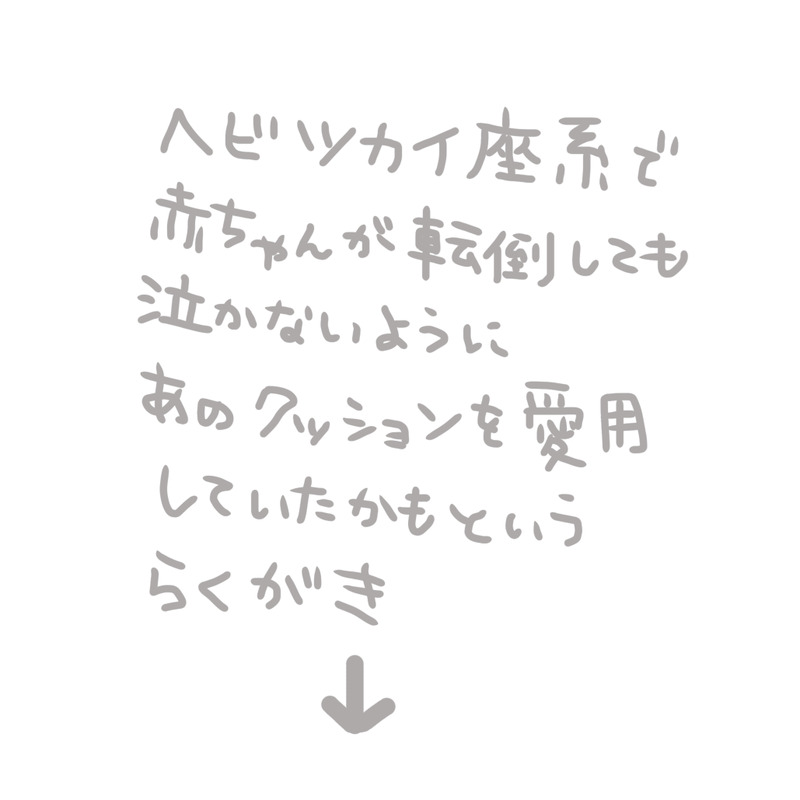 ヘビツカイ座系で
赤ちゃんが転倒しても
泣かないように
あのクッションを愛用
していたかもという
らくがき
↓